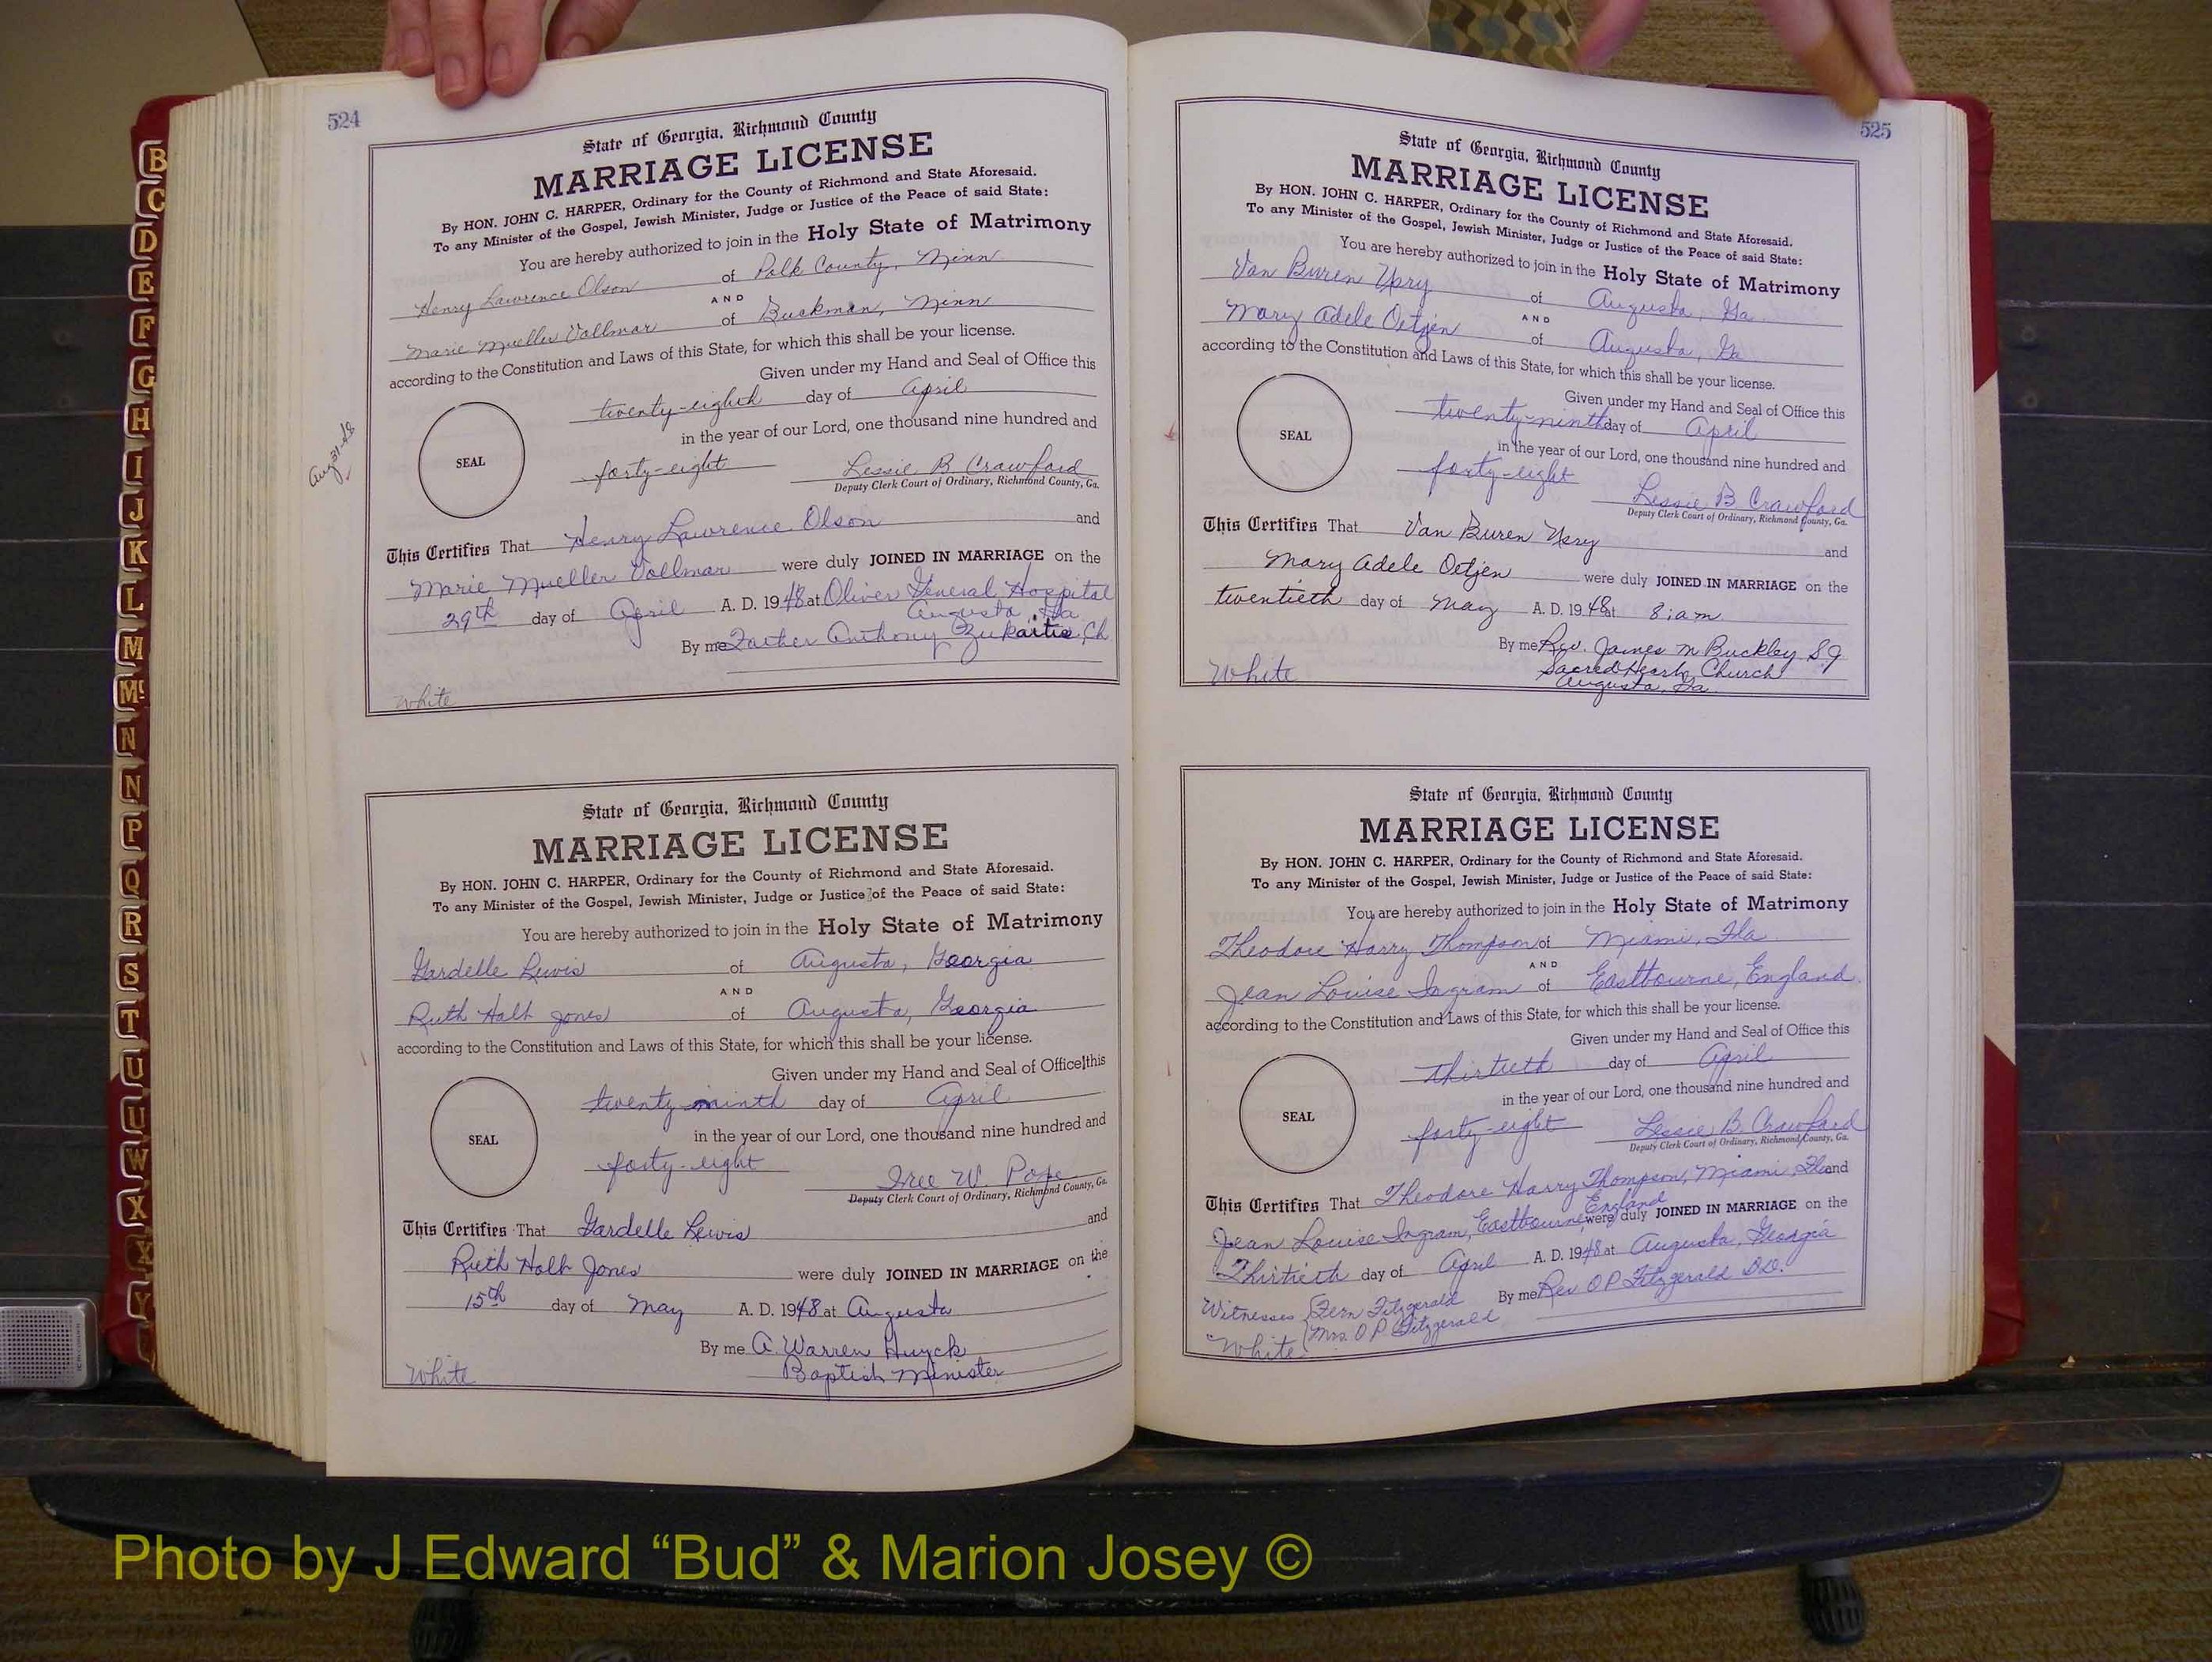 B
C
D
E
F
G
H
I
J
K
L
M
Mc
N
N
P
Q
R
S
T
U
U
W
X
X
Y
524
State of Georgia, Richmond County
MARRIAGE LICENSE
By HON. JOHN C. HARPER, Ordinary for the County of Richmond and State Aforesaid.
To any Minister of the Gospel, Jewish Minister, Judge or Justice of the Peace of said State:
You are hereby authorized to join in the Holy State of Matrimony
Henry Lawrence Olson of Polk County, Minn
AND
Marie Mueller Vollmar of Buckman, Minn
according to the Constitution and Laws of this State, for which this shall be your license.
Given under my Hand and Seal of Office this
twenty-eighth day of April
in the year of our Lord, one thousand nine hundred and
SEAL
forty-eight Lessie B Crawford
Deputy Clerk Court of Ordinary, Richmond County, Ga.
This Certifies That Henry Lawrence Olson and
Marie Mueller Vollmar were duly JOINED IN MARRIAGE on the
29th day of April A. D. 1948 at Oliver General Hospital
Augusta, Ga
By me Father Anthony Zukaitis, Ch
White
State of Georgia, Richmond County
MARRIAGE LICENSE
By HON. JOHN C. HARPER, Ordinary for the County of Richmond and State Aforesaid.
To any Minister of the Gospel, Jewish Minister, Judge or Justice of the Peace of said State:
You are hereby authorized to join in the Holy State of Matrimony
Gardelle Lewis of Augusta, Georgia
AND
Ruth Holt Jones of Augusta, Georgia
according to the Constitution and Laws of this State, for which this shall be your license.
Given under my Hand and Seal of Office this
twenty-ninth day of April
in the year of our Lord, one thousand nine hundred and
SEAL
forty-eight Iree W. Pope
Deputy Clerk Court of Ordinary, Richmond County, Ga.
This Certifies That Gardelle Lewis and
Ruth Holt Jones were duly JOINED IN MARRIAGE on the
15th day of May A. D. 1948 at Augusta
By me A. Warren Huyck
Baptist Minister
White
525
State of Georgia, Richmond County
MARRIAGE LICENSE
By HON. JOHN C. HARPER, Ordinary for the County of Richmond and State Aforesaid.
To any Minister of the Gospel, Jewish Minister, Judge or Justice of the Peace of said State:
You are hereby authorized to join in the Holy State of Matrimony
Van Buren Upry of Augusta, Ga.
AND
Mary Adele Oetjen of Augusta, Ga
according to the Constitution and Laws of this State, for which this shall be your license.
Given under my Hand and Seal of Office this
twenty-ninth day of April
in the year of our Lord, one thousand nine hundred and
SEAL
forty-eight Lessie B Crawford
Deputy Clerk Court of Ordinary, Richmond County, Ga.
This Certifies That Van Buren Upry and
Mary Adele Oetjen were duly JOINED IN MARRIAGE on the
twentieth day of May A. D. 1948 at 8:am
By me Rev. James M Buckley SJ
Sacred Heart Church
Augusta, Ga.
White
State of Georgia, Richmond County
MARRIAGE LICENSE
By HON. JOHN C. HARPER, Ordinary for the County of Richmond and State Aforesaid.
To any Minister of the Gospel, Jewish Minister, Judge or Justice of the Peace of said State:
You are hereby authorized to join in the Holy State of Matrimony
Theodore Harry Thompson of Miami, Fla
AND
Jean Louise Ingram of Eastbourne, England
according to the Constitution and Laws of this State, for which this shall be your license.
Given under my Hand and Seal of Office this
Thirtieth day of April
in the year of our Lord, one thousand nine hundred and
SEAL
forty-eight Lessie B. Crawford
Deputy Clerk Court of Ordinary, Richmond County, Ga.
This Certifies That Theodore Harry Thompson, Miami, Fla and
Jean Louise Ingram, Eastbourne England were duly JOINED IN MARRIAGE on the
Thirtieth day of April A. D. 1948 at Augusta, Georgia
By me Rev O P Fitzgerald D.D.
Witnesses Fern Fitzgerald
Mrs. O P. Fitzgerald
White
Photo by J Edward “Bud” & Marion Josey ©